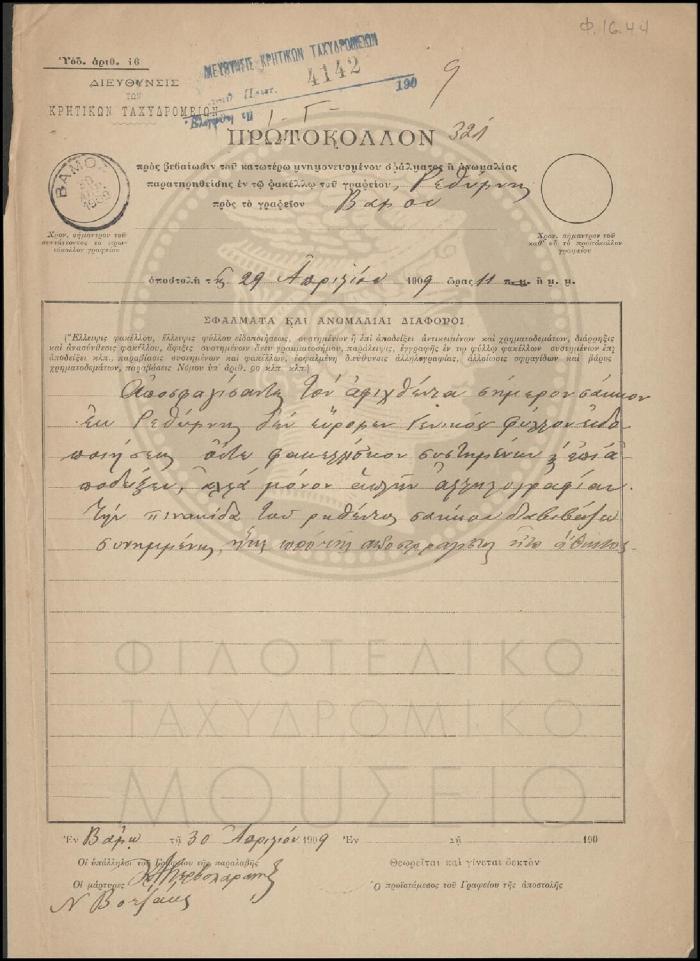 Φ.16.44
Ὑπόδ. ἀριθ. 16
ΔΙΕΥΘΥΝΣΙΣ
ΤΩΝ
ΚΡΗΤΙΚΩΝ ΤΑΧΥΔΡΟΜΕΙΩΝ
ΔΙΕΥΘΥΝΣΙΣ ΚΡΗΤΙΚΩΝ ΤΑΧΥΔΡΟΜΕΙΩΝ
4142
190
9
ΠΡΩΤΟΚΟΛΛΟΝ 321
πρὸς βεβαίωσιν τοῦ κατωτέρω μνημονευομένου σφάλματος ἢ ἀνωμαλίας
παρατηρηθείσης ἐν τῷ φακέλλῳ τοῦ γραφείου, Ρεθύμνης
πρὸς τὸ γραφεῖον Βάμου
ΒΑΜΟΣ
30
1909
Χρον. σήμαντρον τοῦ
συντάσσοντος τὸ πρω-
τόκολλον γραφείου
Χρον. σήμαντρον τοῦ
καθ' οὗ τὸ πρωτόκολλον
γραφείου
ἀποστολὴ τῆς 29 Ἀπριλίου 1909 ὥρας 11 π.μ. ἢ μ. μ.
ΣΦΑΛΜΑΤΑ ΚΑΙ ΑΝΩΜΑΛΙΑΙ ΔΙΑΦΟΡΟΙ
(Ἔλλειψις φακέλλου, ἔλλειψις φύλλου εἰδοποιήσεως, συστημένου ἢ ἐπὶ ἀποδείξει ἀντικειμένου καὶ χρηματοδεμάτων, διάρρηξις
καὶ ἀνασύνθεσις φακέλλου, ἄφιξις συστημένου ἄνευ γραμματοσήμου, παράλειψις, ἐγγραφῆς ἐν τῷ φύλλῳ φακέλλου συστημένων ἐπὶ
ἀποδείξει κλπ., παραβίασις συστημένων καὶ φακέλλων, ἐσφαλμένη διεύθυνσις ἀλληλογραφίας, ἀλλοίωσις σφραγίδων καὶ βάρος
χρηματοδέματος, παραβάσεις Νόμου ὑπ' ἀριθ. 90 κλπ. κλπ.)
Ἀποσφραγίσαντες τὸν ἀφιχθέντα σήμερον σάκκον
ἐκ Ρεθύμνης δὲν εὕρομεν Γενικὸν φύλλον εἰδο
ποιήσεως οὔτε φακελλίσκον συστημένων ἢ ἐπὶ ἀ
ποδείξει, ἀλλὰ μόνον ἁπλῆν ἀλληλογραφίαν.
Τὴν πινακίδα τοῦ ρηθέντος σάκκου διαβιβάζω
συνημμένως, ἥτις
ΦΙΛΟΤΕΛΙΚΟ
ΤΑΧΥΔΡΟΜΙΚΟ
ΜΟΥΣΕΙΟ
Ἐν Βάμῳ τῇ 30 Ἀπριλίου 1909 Ἐν τῇ 190
Οἱ ὑπάλληλοι τοῦ Γραφείου τῆς παραλαβῆς
Θεωρεῖται καὶ γίνεται δεκτὸν
Οἱ μάρτυρες
Ὁ προϊστάμενος τοῦ Γραφείου τῆς ἀποστολῆς